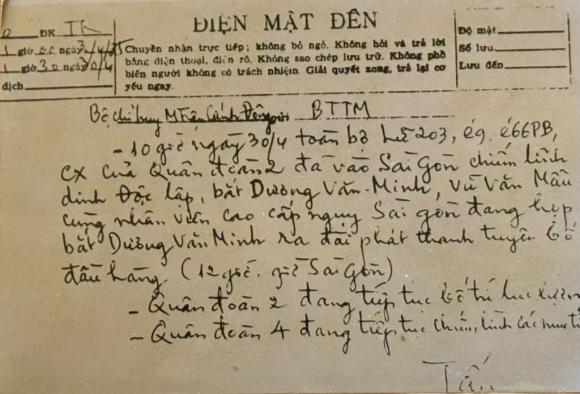 ĐIỆN MẬT ĐẾN
ĐK II
1 giờ 00 ngày 30/4/75
1 giờ 30 ngày 30/4
dịch
Chuyển nhận trực tiếp; không bỏ ngỏ. Không hỏi và trả lời
bằng điện thoại, điện rõ. Không sao chép lưu trữ. Không phổ
biến người không có trách nhiệm. Giải quyết xong, trả lại cơ
yếu ngay.
Độ mật
Số lưu
Lưu đến
Bộ chỉ huy M Tiền Cánh Đông gửi BTTM
- 10 giờ ngày 30/4 toàn bộ Lữ 203, é9. é66PB,
cx của Quân đoàn 2 đã vào Sài Gòn chiếm lĩnh
dinh Độc lập, bắt Dương Văn Minh, Vũ Văn Mẫu
cùng nhân viên cao cấp ngụy Sài gòn đang họp,
bắt Dương Văn Minh ra đài phát thanh tuyên bố
đầu hàng (12 giờ. giờ Sài Gòn)
- Quân đoàn 2 đang tiếp tục bố trí lực lượng
- Quân đoàn 4 đang tiếp tục chiếm lĩnh các mục
Tấn